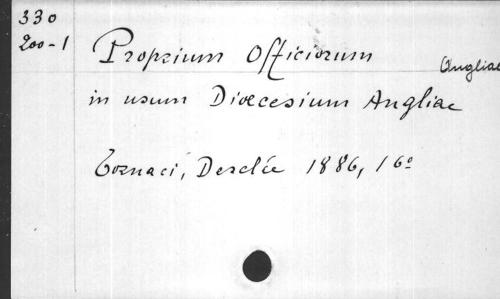 330
200-1
Proprium Officiorum
Angliae
in usum Dioecesium Angliae
Tornaci, Desclée 1886, 16°